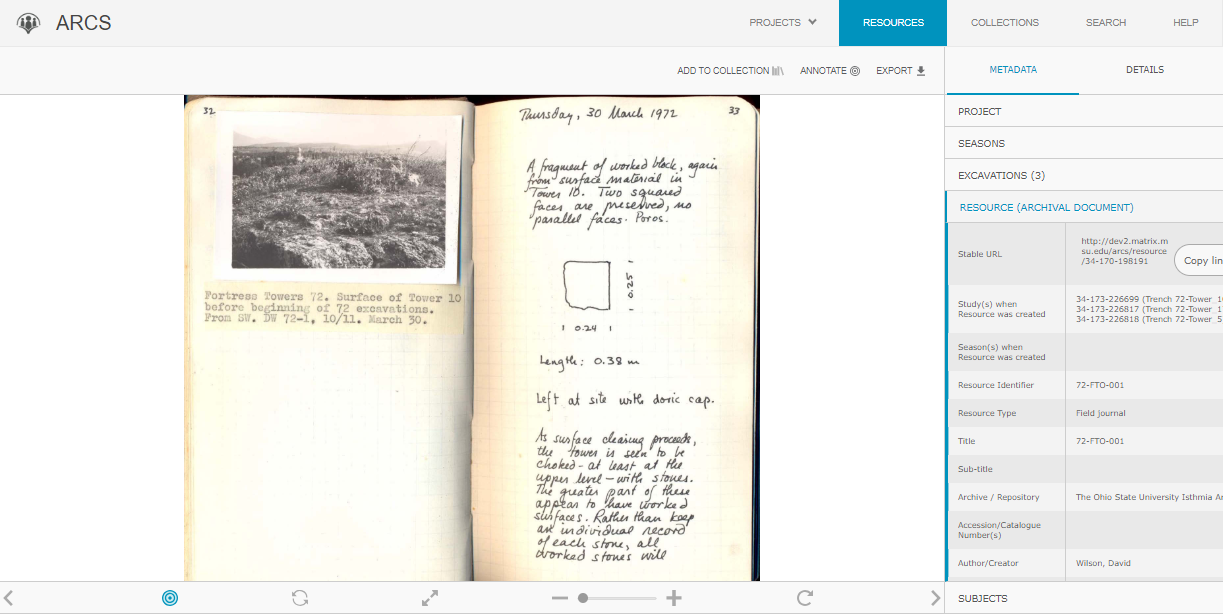 ARCS
PROJECTS
RESOURCES
COLLECTIONS
SEARCH
HELP
ADD TO COLLECTION
ANNOTATE
EXPORT
METADATA
DETAILS
32
Fortress Towers 72. Surface of Tower 10
before beginning of 72 excavations.
From SW. DW 72-1, 10/11. March 30.
Thursday, 30 March 1972
33
A fragment of worked block, again
from surface material in
Tower 10. Two squared
faces are preserved, no
parallel faces. Poros.
0.25
0.24
Length: 0.38 m
Left at site with doric cap.
As surface clearing proceeds,
the tower is seen to be
choked - at least at the
upper level - with stones.
The greater part of these
appear to have worked
surfaces. Rather than keep
an individual record
of each stone, all
worked stones will
PROJECT
SEASONS
EXCAVATIONS (3)
RESOURCE (ARCHIVAL DOCUMENT)
Stable URL
http://dev2.matrix.m
su.edu/arcs/resource
/34-170-198191
Copy lin
Study(s) when
Resource was created
34-173-226699 (Trench 72-Tower_1
34-173-226817 (Trench 72-Tower_1
34-173-226818 (Trench 72-Tower_5
Season(s) when
Resource was created
Resource Identifier
72-FTO-001
Resource Type
Field Journal
Title
72-FTO-001
Sub-title
Archive / Repository
The Ohio State University Isthmia Ar
Accession/Catalogue
Number(s)
Author/Creator
Wilson, David
SUBJECTS